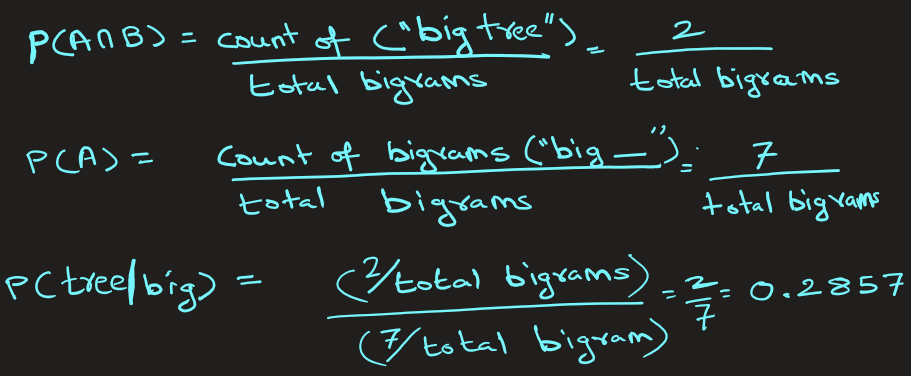 P(A∩B) = count of ("big tree") / total bigrams = 2 / total bigrams
P(A) = Count of bigrams ("big —") / total bigrams = 7 / total bigrams
P(tree/big) = (2/total bigrams) / (7/total bigram) = 2/7 = 0.2857